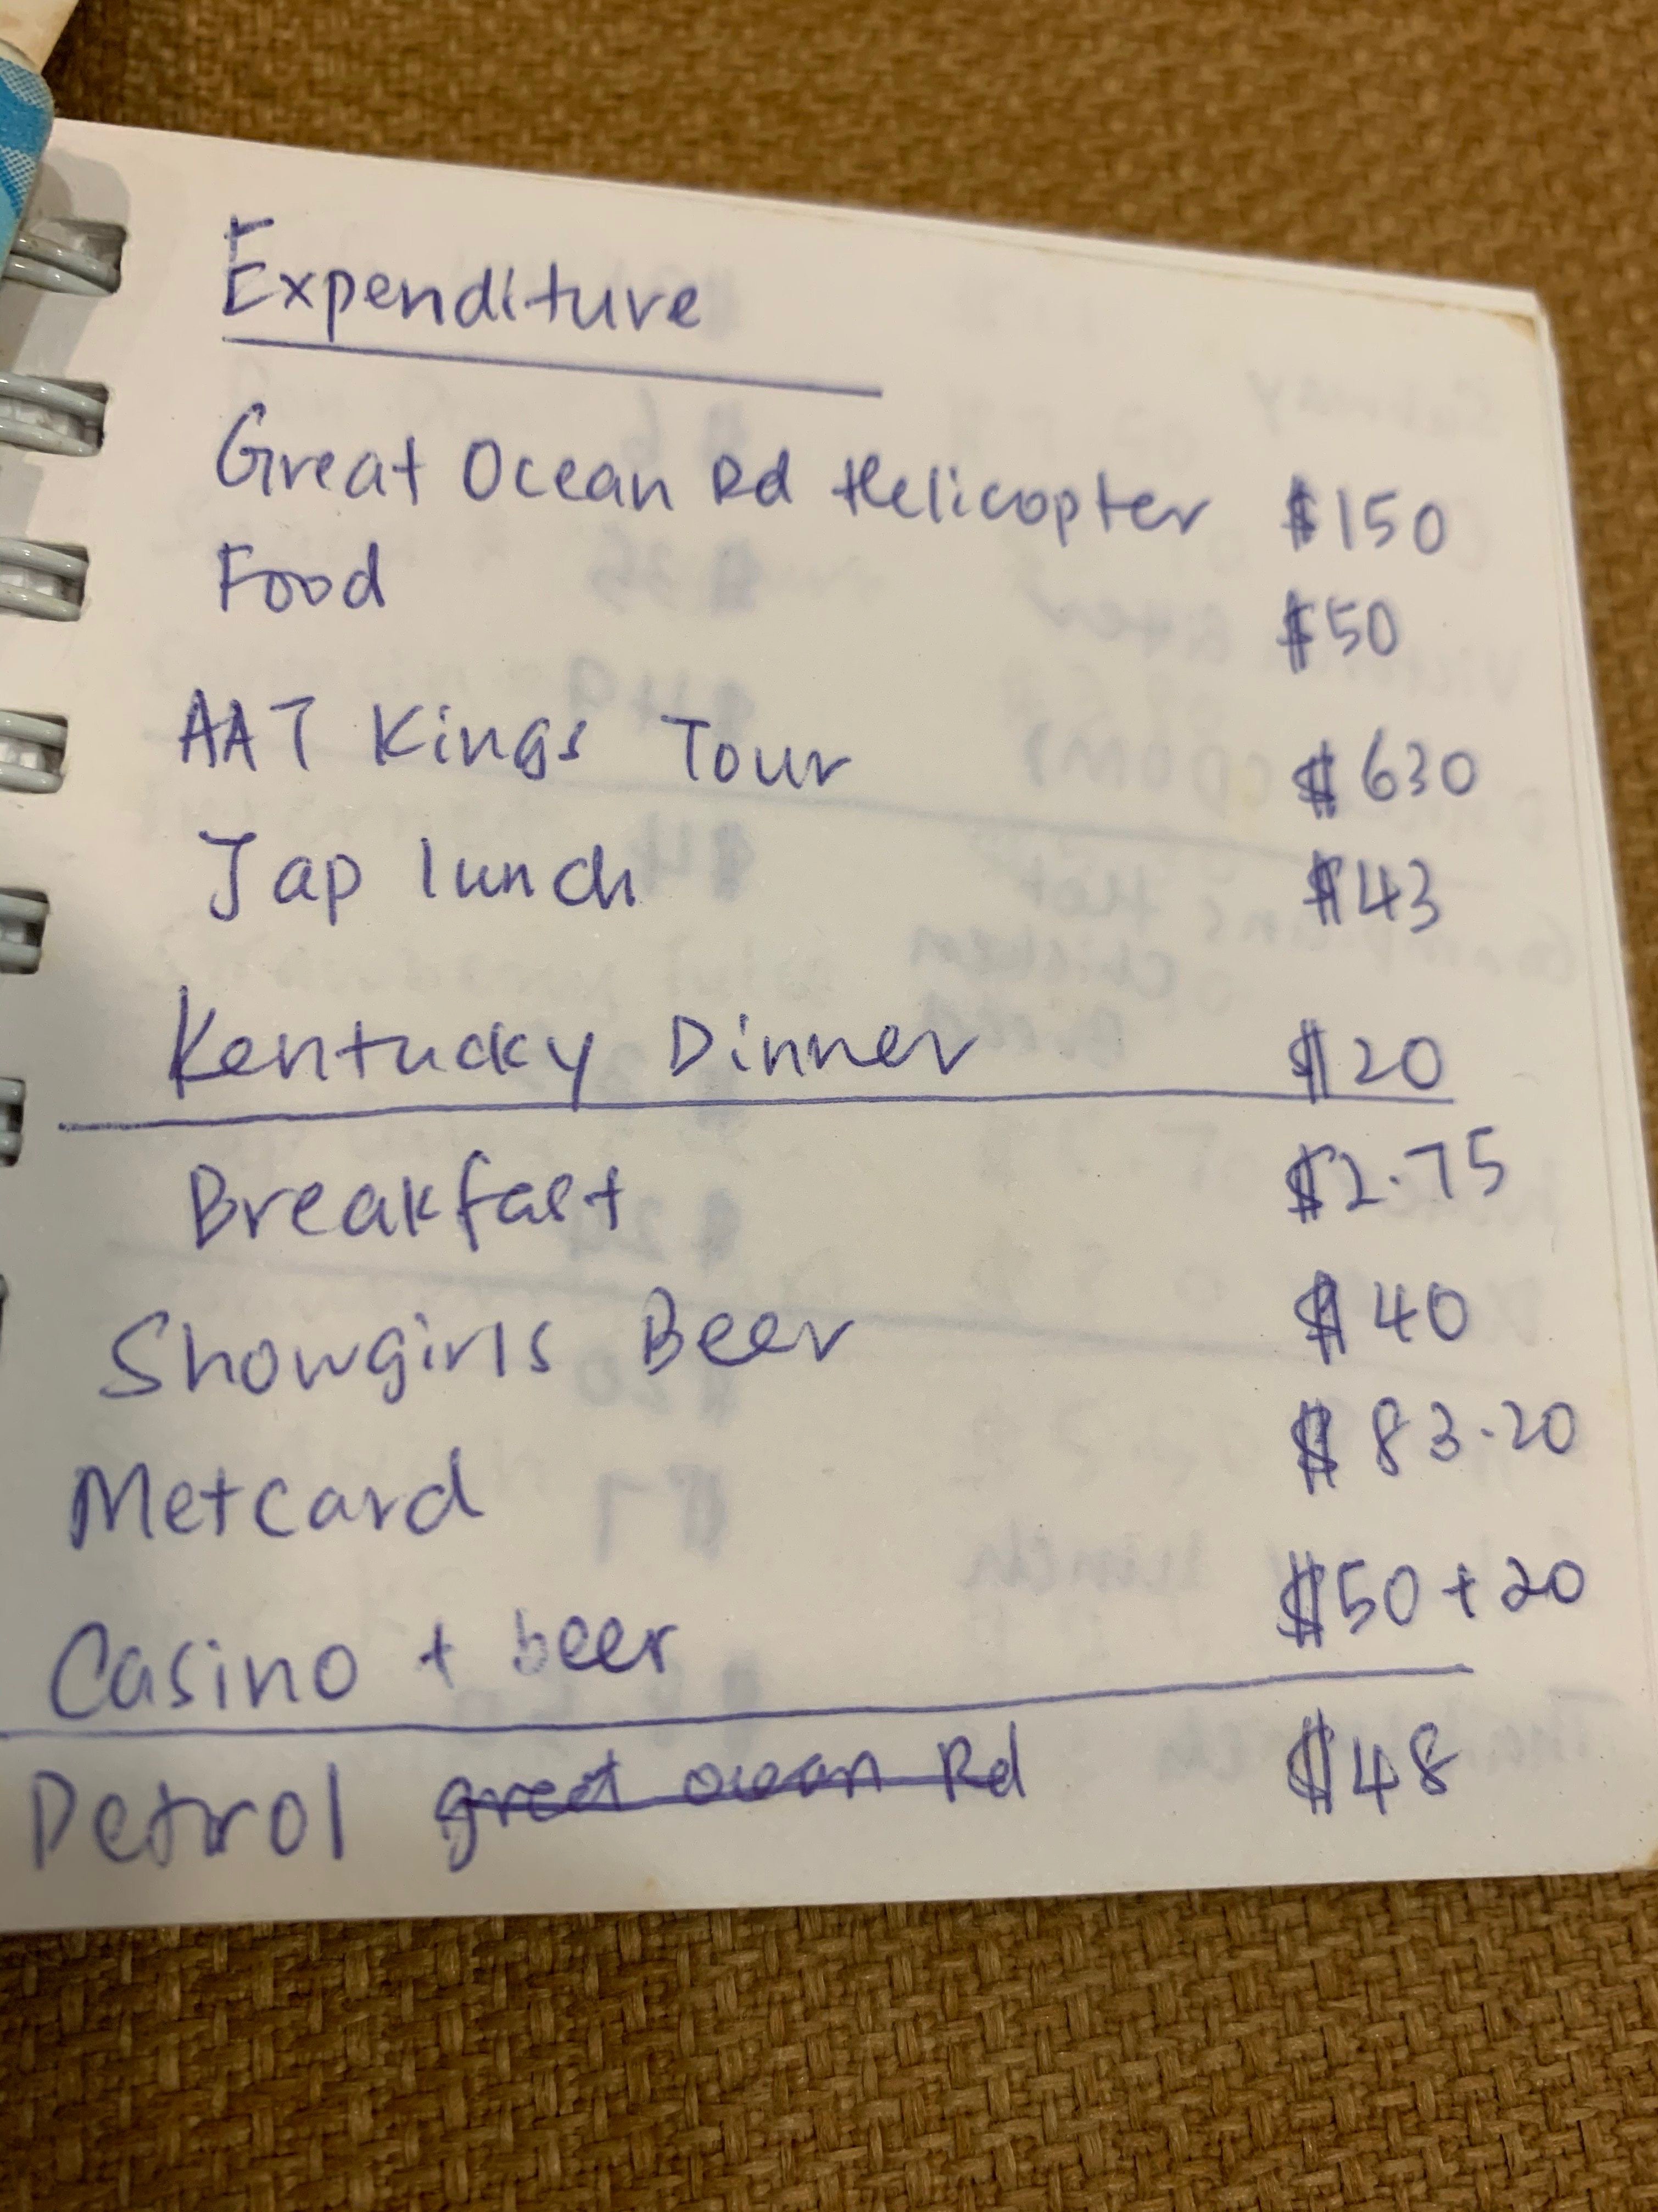 Expenditure
Great Ocean Rd Helicopter $150
Food $50
AAT Kings Tour $630
Jap lunch $43
Kentucky Dinner $20
Breakfast $2.75
Showgirls Beer $40
Metcard $83.20
Casino + beer $50+20
Petrol great ocean Rd $48